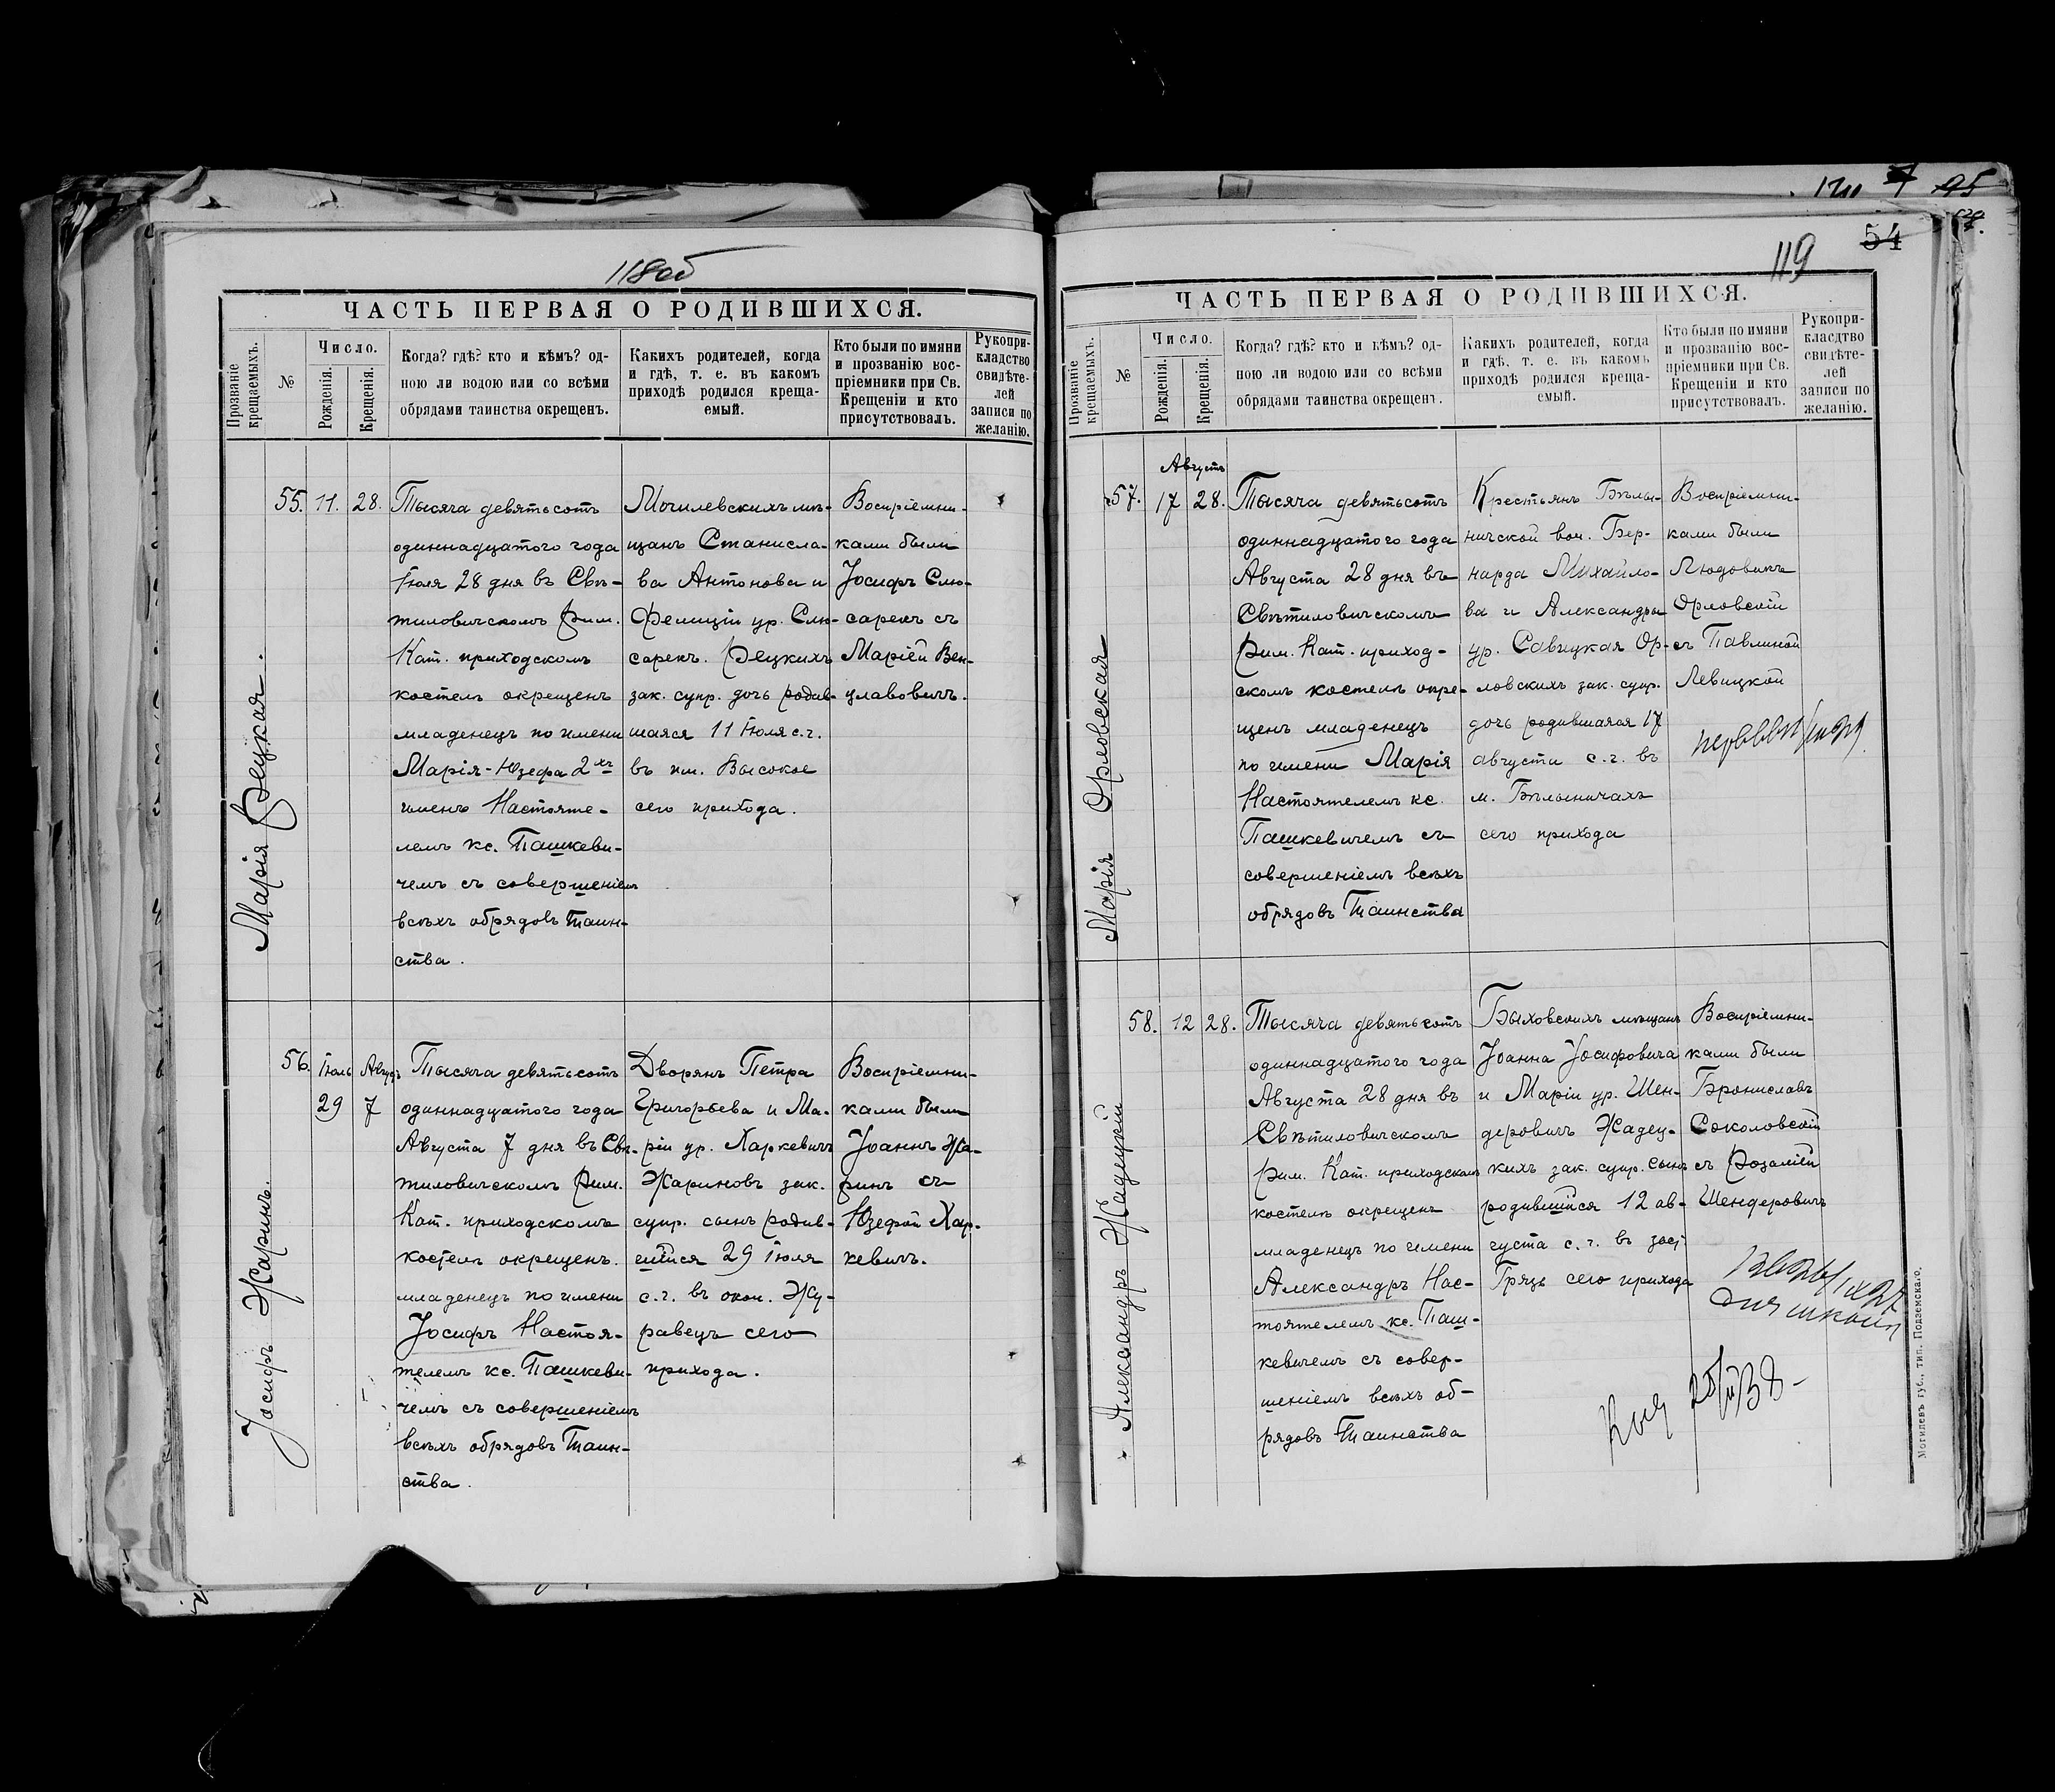 118об
ЧАСТЬ ПЕРВАЯ О РОДИВШИХСЯ.
Прозваніе крещаемыхъ.
№
Число.
Рожденія.
Крещенія.
Когда? гдѣ? кто и кѣмъ? од-
ною ли водою или со всѣми
обрядами таинства окрещенъ.
Какихъ родителей, когда
и гдѣ, т. е. въ какомъ
приходѣ родился креща-
емый.
Кто были по имяни
и прозванію вос-
пріемники при Св.
Крещеніи и кто
присутствовалъ.
Рукопри-
кладство
свидѣте-
лей
записи по
желанію.
Марія Рецкая.
55. 11. 28.
Тысяча девятьсотъ
одиннадцатого года
Іюля 28 дня въ Свѣ-
тиловичскомъ Рим.
Кат. приходскомъ
костелѣ окрещенъ
младенецъ по имени
Марія-Юзефа 2хъ
именъ Настояте-
лемъ кс. Пашкеви-
чемъ съ совершеніемъ
всѣхъ обрядовъ Таин-
ства.
Могилевскихъ мѣ-
щанъ Станисла-
ва Антонова и
Фелиціи ур. Слю-
сарекъ. Рецкихъ
зак. супр. дочь родив-
шаяся 11 Іюля с.г.
въ им. Высокое
сего прихода.
Воспріемни-
ками были
Іосифъ Слю-
сарекъ съ
Маріей Вен-
цлавовичъ.
Іосифъ Жаринъ.
56. Іюль Августъ
29 7
Тысяча девятьсотъ
одиннадцатого года
Августа 7 дня въ Свѣ-
тиловичскомъ Рим.
Кат. приходскомъ
костелѣ окрещенъ.
младенецъ по имени
Іосифъ Настоя-
телемъ кс. Пашкеви-
чемъ съ совершеніемъ
всѣхъ обрядовъ Таин-
ства.
Дворянъ Петра
Григорьева и Ма-
ріи ур. Харкевичъ
Жариновъ зак.
супр. сынъ родив-
шійся 29 Іюля
с.г. въ окол. Жу-
равецъ сего
прихода.
Воспріемни-
ками были
Іоаннъ Жа-
ринъ съ
Юзефой Хар-
кевичъ.
54
119
ЧАСТЬ ПЕРВАЯ О РОДИВШИХСЯ.
Прозваніе крещаемыхъ.
№
Число.
Рожденія.
Крещенія.
Когда? гдѣ? кто и кѣмъ? од-
ною ли водою или со всѣми
обрядами таинства окрещенъ.
Какихъ родителей, когда
и гдѣ, т. е. въ какомъ
приходѣ родился креща-
емый.
Кто были по имяни
и прозванію вос-
пріемники при Св.
Крещеніи и кто
присутствовалъ.
Рукопри-
кладство
свидѣте-
лей
записи по
желанію.
Марія Орловская
Августъ
57. 17 28.
Тысяча девятьсотъ
одиннадцатого года
Августа 28 дня въ
Свѣтиловичскомъ
Рим. Кат. приход-
скомъ костелѣ окре-
щенъ младенецъ
по имени Марія
Настоятелемъ кс.
Пашкевичемъ съ
совершеніемъ всѣхъ
обрядовъ Таинства
Крестьянъ Бѣлы-
ничской вол. Бер-
нарда Михайло-
ва и Александры
ур. Савицкая Ор-
ловскихъ зак. супр.
дочь родившаяся 17
августа с.г. въ
м. Бѣлыничахъ
сего прихода
Воспріемни-
ками были
Людовикъ
Орловскій
съ Павлиной
Левицкой
Александръ Жадецкій
58. 12 28.
Тысяча девятьсотъ
одиннадцатого года
Августа 28 дня въ
Свѣтиловичскомъ
Рим. Кат. приходскомъ
костелѣ окрещенъ
младенецъ по имени
Александръ Нас-
тоятелемъ кс. Паш-
кевичемъ съ совер-
шеніемъ всѣхъ об-
рядовъ Таинства
Быховскихъ мѣщанъ
Іоанна Іосифовича
и Маріи ур. Шен-
деровичъ Жадец-
кихъ зак. супр. сынъ
родившійся 12 ав-
густа с.г. въ заст.
Грязь сего прихода
Воспріемни-
ками были
Брониславъ
Соколовскій
съ Розаліей
Шендеровичъ
Могилевъ губ., тип. Подземскаго.